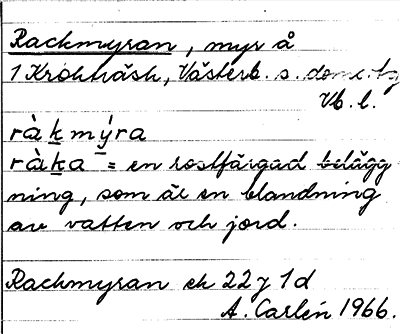 Rackmyran, myr å
1 Krokträsk, Västerb. s. dom.
Vb. l.
ràkmýra
ràka = en rostfärgad belägg
ning, som är en blandning
av vatten och jord.
Rackmyran ek 22 7 1d
A. Carlén 1966.